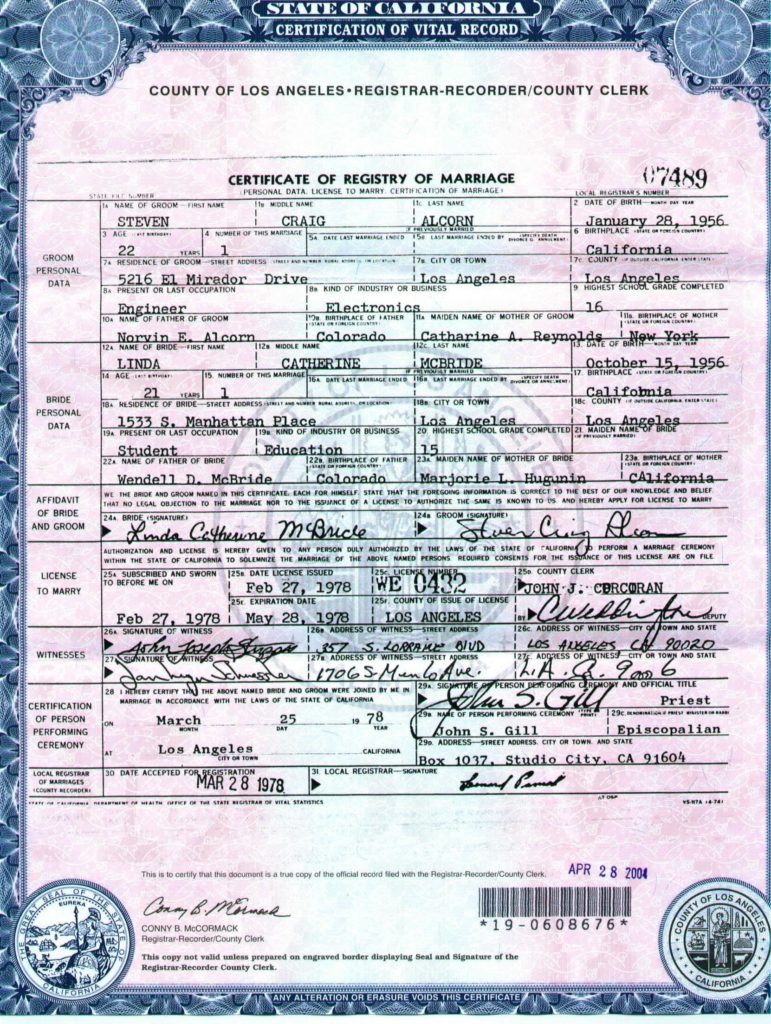 STATE OF CALIFORNIA
CERTIFICATION OF VITAL RECORD
COUNTY OF LOS ANGELES • REGISTRAR-RECORDER/COUNTY CLERK
CERTIFICATE OF REGISTRY OF MARRIAGE 07489
(PERSONAL DATA, LICENSE TO MARRY, CERTIFICATION OF MARRIAGE)
STATE FILE NUMBER LOCAL REGISTRAR'S NUMBER
GROOM PERSONAL DATA
1A NAME OF GROOM—FIRST NAME 1B MIDDLE NAME 1C LAST NAME 2 DATE OF BIRTH—MONTH DAY YEAR
STEVEN CRAIG ALCORN January 28, 1956
3 AGE (LAST BIRTHDAY) 4 NUMBER OF THIS MARRIAGE IF PREVIOUSLY MARRIED 5A DATE LAST MARRIAGE ENDED 5B LAST MARRIAGE ENDED BY 6 BIRTHPLACE (STATE OR FOREIGN COUNTRY)
22 YEARS 1 California
7A RESIDENCE OF GROOM—STREET ADDRESS 7B CITY OR TOWN 7C COUNTY
5216 El Mirador Drive Los Angeles Los Angeles
8A PRESENT OR LAST OCCUPATION 8B KIND OF INDUSTRY OR BUSINESS 9 HIGHEST SCHOOL GRADE COMPLETED
Engineer Electronics 16
10A NAME OF FATHER OF GROOM 10B BIRTHPLACE OF FATHER 11A MAIDEN NAME OF MOTHER OF GROOM 11B. BIRTHPLACE OF MOTHER
Norvin E. Alcorn Colorado Catharine A. Reynolds New York
BRIDE PERSONAL DATA
12A NAME OF BRIDE—FIRST NAME 12B MIDDLE NAME 12C. LAST NAME 13. DATE OF BIRTH—MONTH DAY YEAR
LINDA CATHERINE MCBRIDE October 15, 1956
14 AGE (LAST BIRTHDAY) 15. NUMBER OF THIS MARRIAGE IF PREVIOUSLY MARRIED 16A DATE LAST MARRIAGE ENDED 16B. LAST MARRIAGE ENDED BY 17. BIRTHPLACE (STATE OR FOREIGN COUNTRY)
21 YEARS 1 California
18A RESIDENCE OF BRIDE—STREET ADDRESS 18B CITY OR TOWN 18C COUNTY
1533 S. Manhattan Place Los Angeles Los Angeles
19A PRESENT OR LAST OCCUPATION 19B KIND OF INDUSTRY OR BUSINESS 20. HIGHEST SCHOOL GRADE COMPLETED 21. MAIDEN NAME OF BRIDE (IF PREVIOUSLY MARRIED)
Student Education 15
22A NAME OF FATHER OF BRIDE 22B. BIRTHPLACE OF FATHER 23A MAIDEN NAME OF MOTHER OF BRIDE 23B BIRTHPLACE OF MOTHER
Wendell D. McBride Colorado Marjorie L. Hugunin CAlifornia
AFFIDAVIT OF BRIDE AND GROOM
WE THE BRIDE AND GROOM NAMED IN THIS CERTIFICATE, EACH FOR HIMSELF, STATE THAT THE FOREGOING INFORMATION IS CORRECT TO THE BEST OF OUR KNOWLEDGE AND BELIEF,
THAT NO LEGAL OBJECTION TO THE MARRIAGE NOR TO THE ISSUANCE OF A LICENSE TO AUTHORIZE THE SAME IS KNOWN TO US, AND HEREBY APPLY FOR LICENSE TO MARRY
24A. BRIDE (SIGNATURE) 24B GROOM (SIGNATURE)
Linda Catherine McBride Steven Craig Alcorn
LICENSE TO MARRY
AUTHORIZATION AND LICENSE IS HEREBY GIVEN TO ANY PERSON DULY AUTHORIZED BY THE LAWS OF THE STATE OF CALIFORNIA TO PERFORM A MARRIAGE CEREMONY
WITHIN THE STATE OF CALIFORNIA TO SOLEMNIZE THE MARRIAGE OF THE ABOVE NAMED PERSONS REQUIRED CONSENTS FOR THE ISSUANCE OF THIS LICENSE ARE ON FILE
25A SUBSCRIBED AND SWORN TO BEFORE ME ON 25B DATE LICENSE ISSUED 25C. LICENSE NUMBER 25D COUNTY CLERK
Feb 27, 1978 WE 0432 JOHN J. CORCORAN
25E EXPIRATION DATE 25F. COUNTY OF ISSUE OF LICENSE
Feb 27, 1978 May 28, 1978 LOS ANGELES BY DEPUTY
WITNESSES
26A SIGNATURE OF WITNESS 26B ADDRESS OF WITNESS—STREET ADDRESS 26C. ADDRESS OF WITNESS—CITY OR TOWN AND STATE
John Joseph 357 S. LORRAINE BLVD LOS ANGELES, CA 90020
27A SIGNATURE OF WITNESS 27B ADDRESS OF WITNESS—STREET ADDRESS 27C ADDRESS OF WITNESS—CITY OR TOWN AND STATE
1706 S. Menlo Ave. L.A. Ca. 90006
CERTIFICATION OF PERSON PERFORMING CEREMONY
28 I HEREBY CERTIFY THAT THE ABOVE NAMED BRIDE AND GROOM WERE JOINED BY ME IN MARRIAGE IN ACCORDANCE WITH THE LAWS OF THE STATE OF CALIFORNIA
29A. SIGNATURE OF PERSON PERFORMING CEREMONY AND OFFICIAL TITLE
John S. Gill Priest
ON March 25 19 78
MONTH DAY YEAR
29B. NAME OF PERSON PERFORMING CEREMONY 29C. DENOMINATION
John S. Gill Episcopalian
AT Los Angeles CALIFORNIA
CITY OR TOWN
29D. ADDRESS—STREET ADDRESS, CITY OR TOWN, AND STATE
Box 1037, Studio City, CA 91604
LOCAL REGISTRAR OF MARRIAGES (COUNTY RECORDER)
30 DATE ACCEPTED FOR REGISTRATION 31. LOCAL REGISTRAR—SIGNATURE
MAR 28 1978
STATE OF CALIFORNIA, DEPARTMENT OF HEALTH, OFFICE OF THE STATE REGISTRAR OF VITAL STATISTICS
This is to certify that this document is a true copy of the official record filed with the Registrar-Recorder/County Clerk.
APR 28 2004
Conny B. McCormack
CONNY B. McCORMACK
Registrar-Recorder/County Clerk
*19-0608676*
This copy not valid unless prepared on engraved border displaying Seal and Signature of the
Registrar-Recorder County Clerk.
THE GREAT SEAL OF THE STATE OF CALIFORNIA
EUREKA
COUNTY OF LOS ANGELES
CALIFORNIA
ANY ALTERATION OR ERASURE VOIDS THIS CERTIFICATE